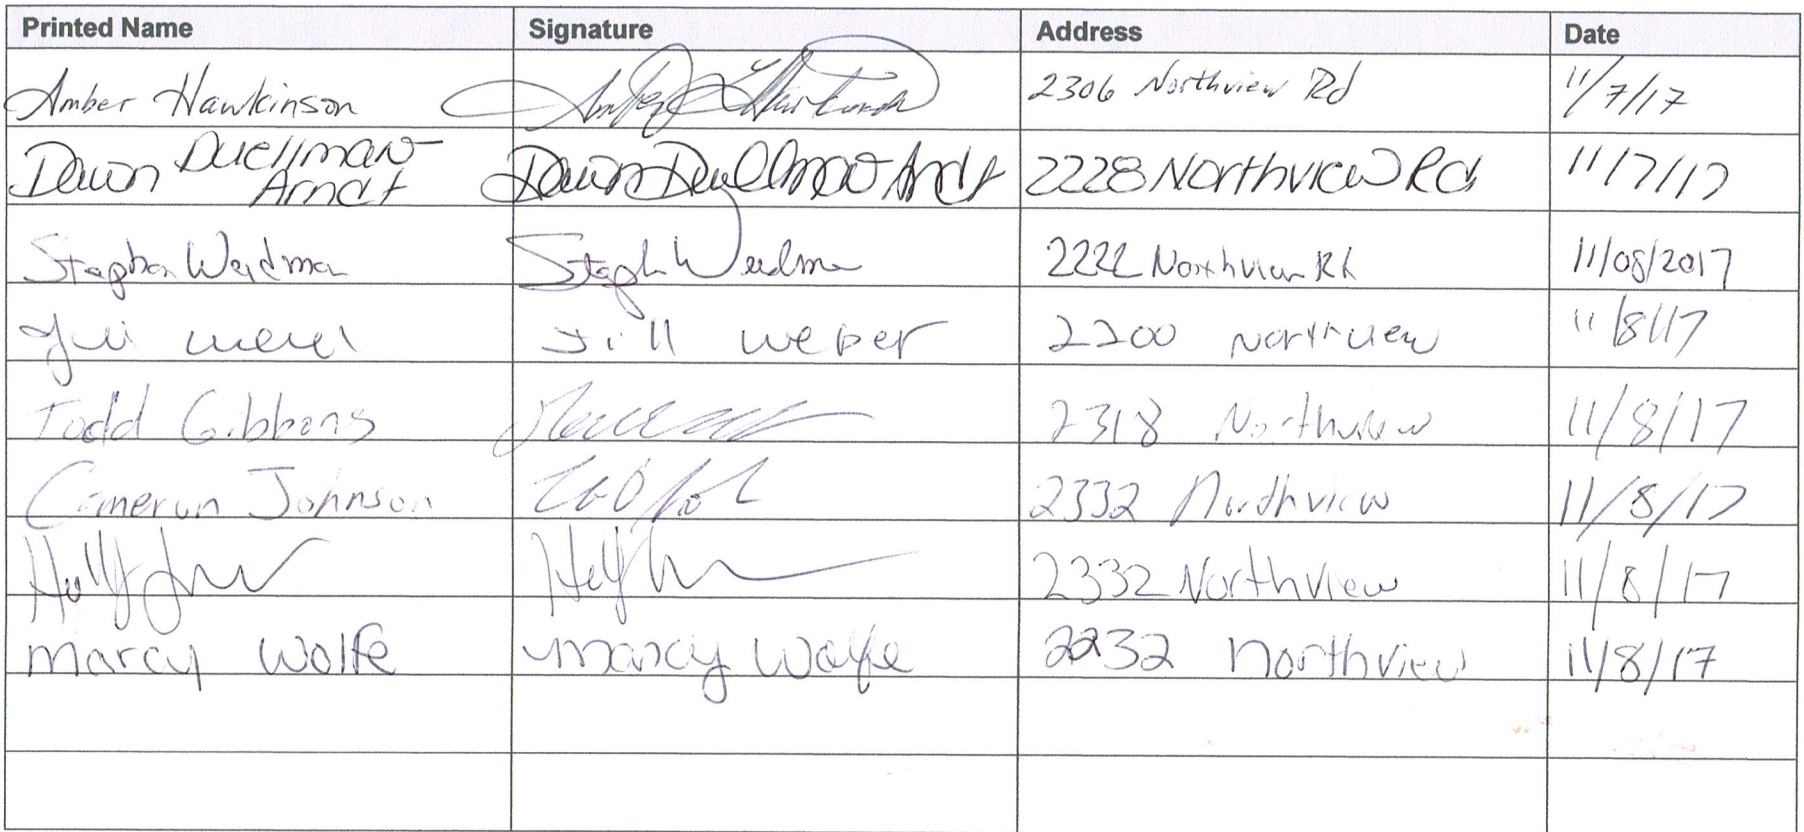 Printed Name Signature Address Date
Amber Hawkinson 2306 Northview Rd 11/7/17
Dawn Duellman-
Arndt Dawn Duellman-Arndt 2228 Northview Rd 11/7/17
Stephen Weidman Steph Weidman 2222 Northview Rd 11/08/2017
Jill Weber Jill Weber 2200 Northview 11/8/17
Todd Gibbens 2318 Northview 11/8/17
Cameron Johnson 2332 Northview 11/8/17
Holly Holly 2332 Northview 11/8/17
Marcy Wolfe Marcy Wolfe 2232 Northview 11/8/17